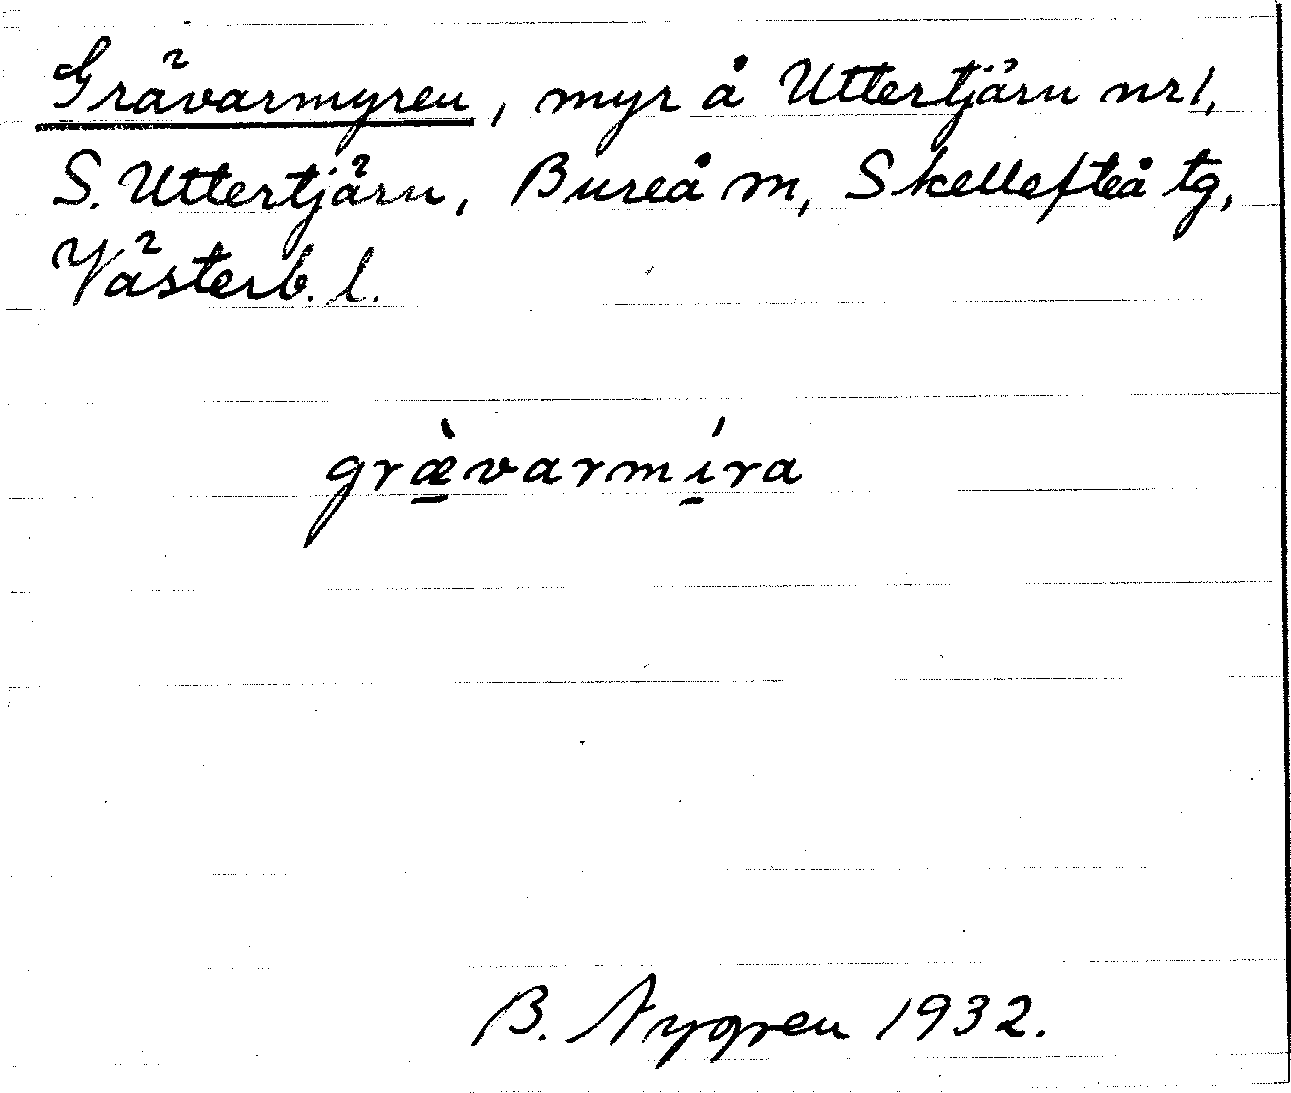 Grävarmyren, myr å Uttertjärn nr 1,
S. Uttertjärn, Bureå m, Skellefteå tg,
Västerb. l.
græ̱̀varmí̱ra
B. Nygren 1932.